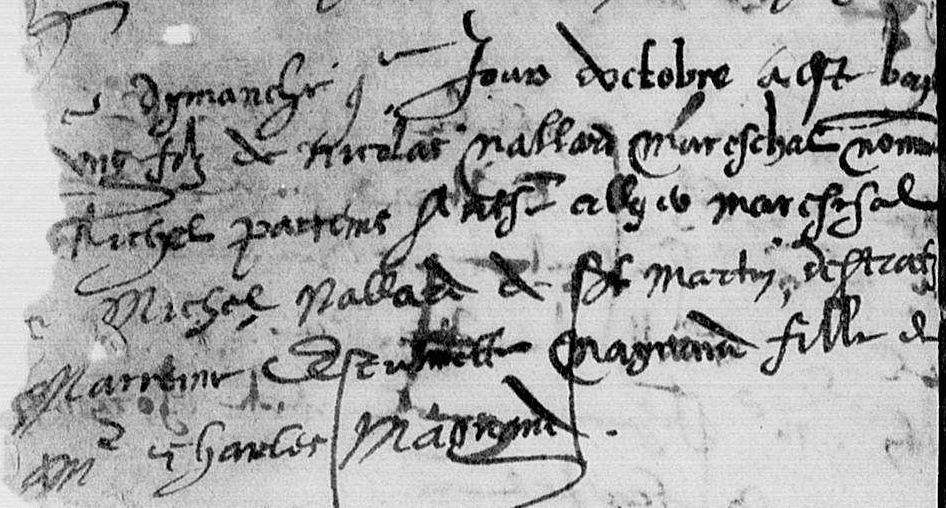 dymanche Jour doctobre a est bap
ung filz de Nicolas Nallard mareschal nomme
Michel parrains mareschal
Michel Nallard de St Martin destratz
Marreine Magnand fille de
Mr Charles Magnand